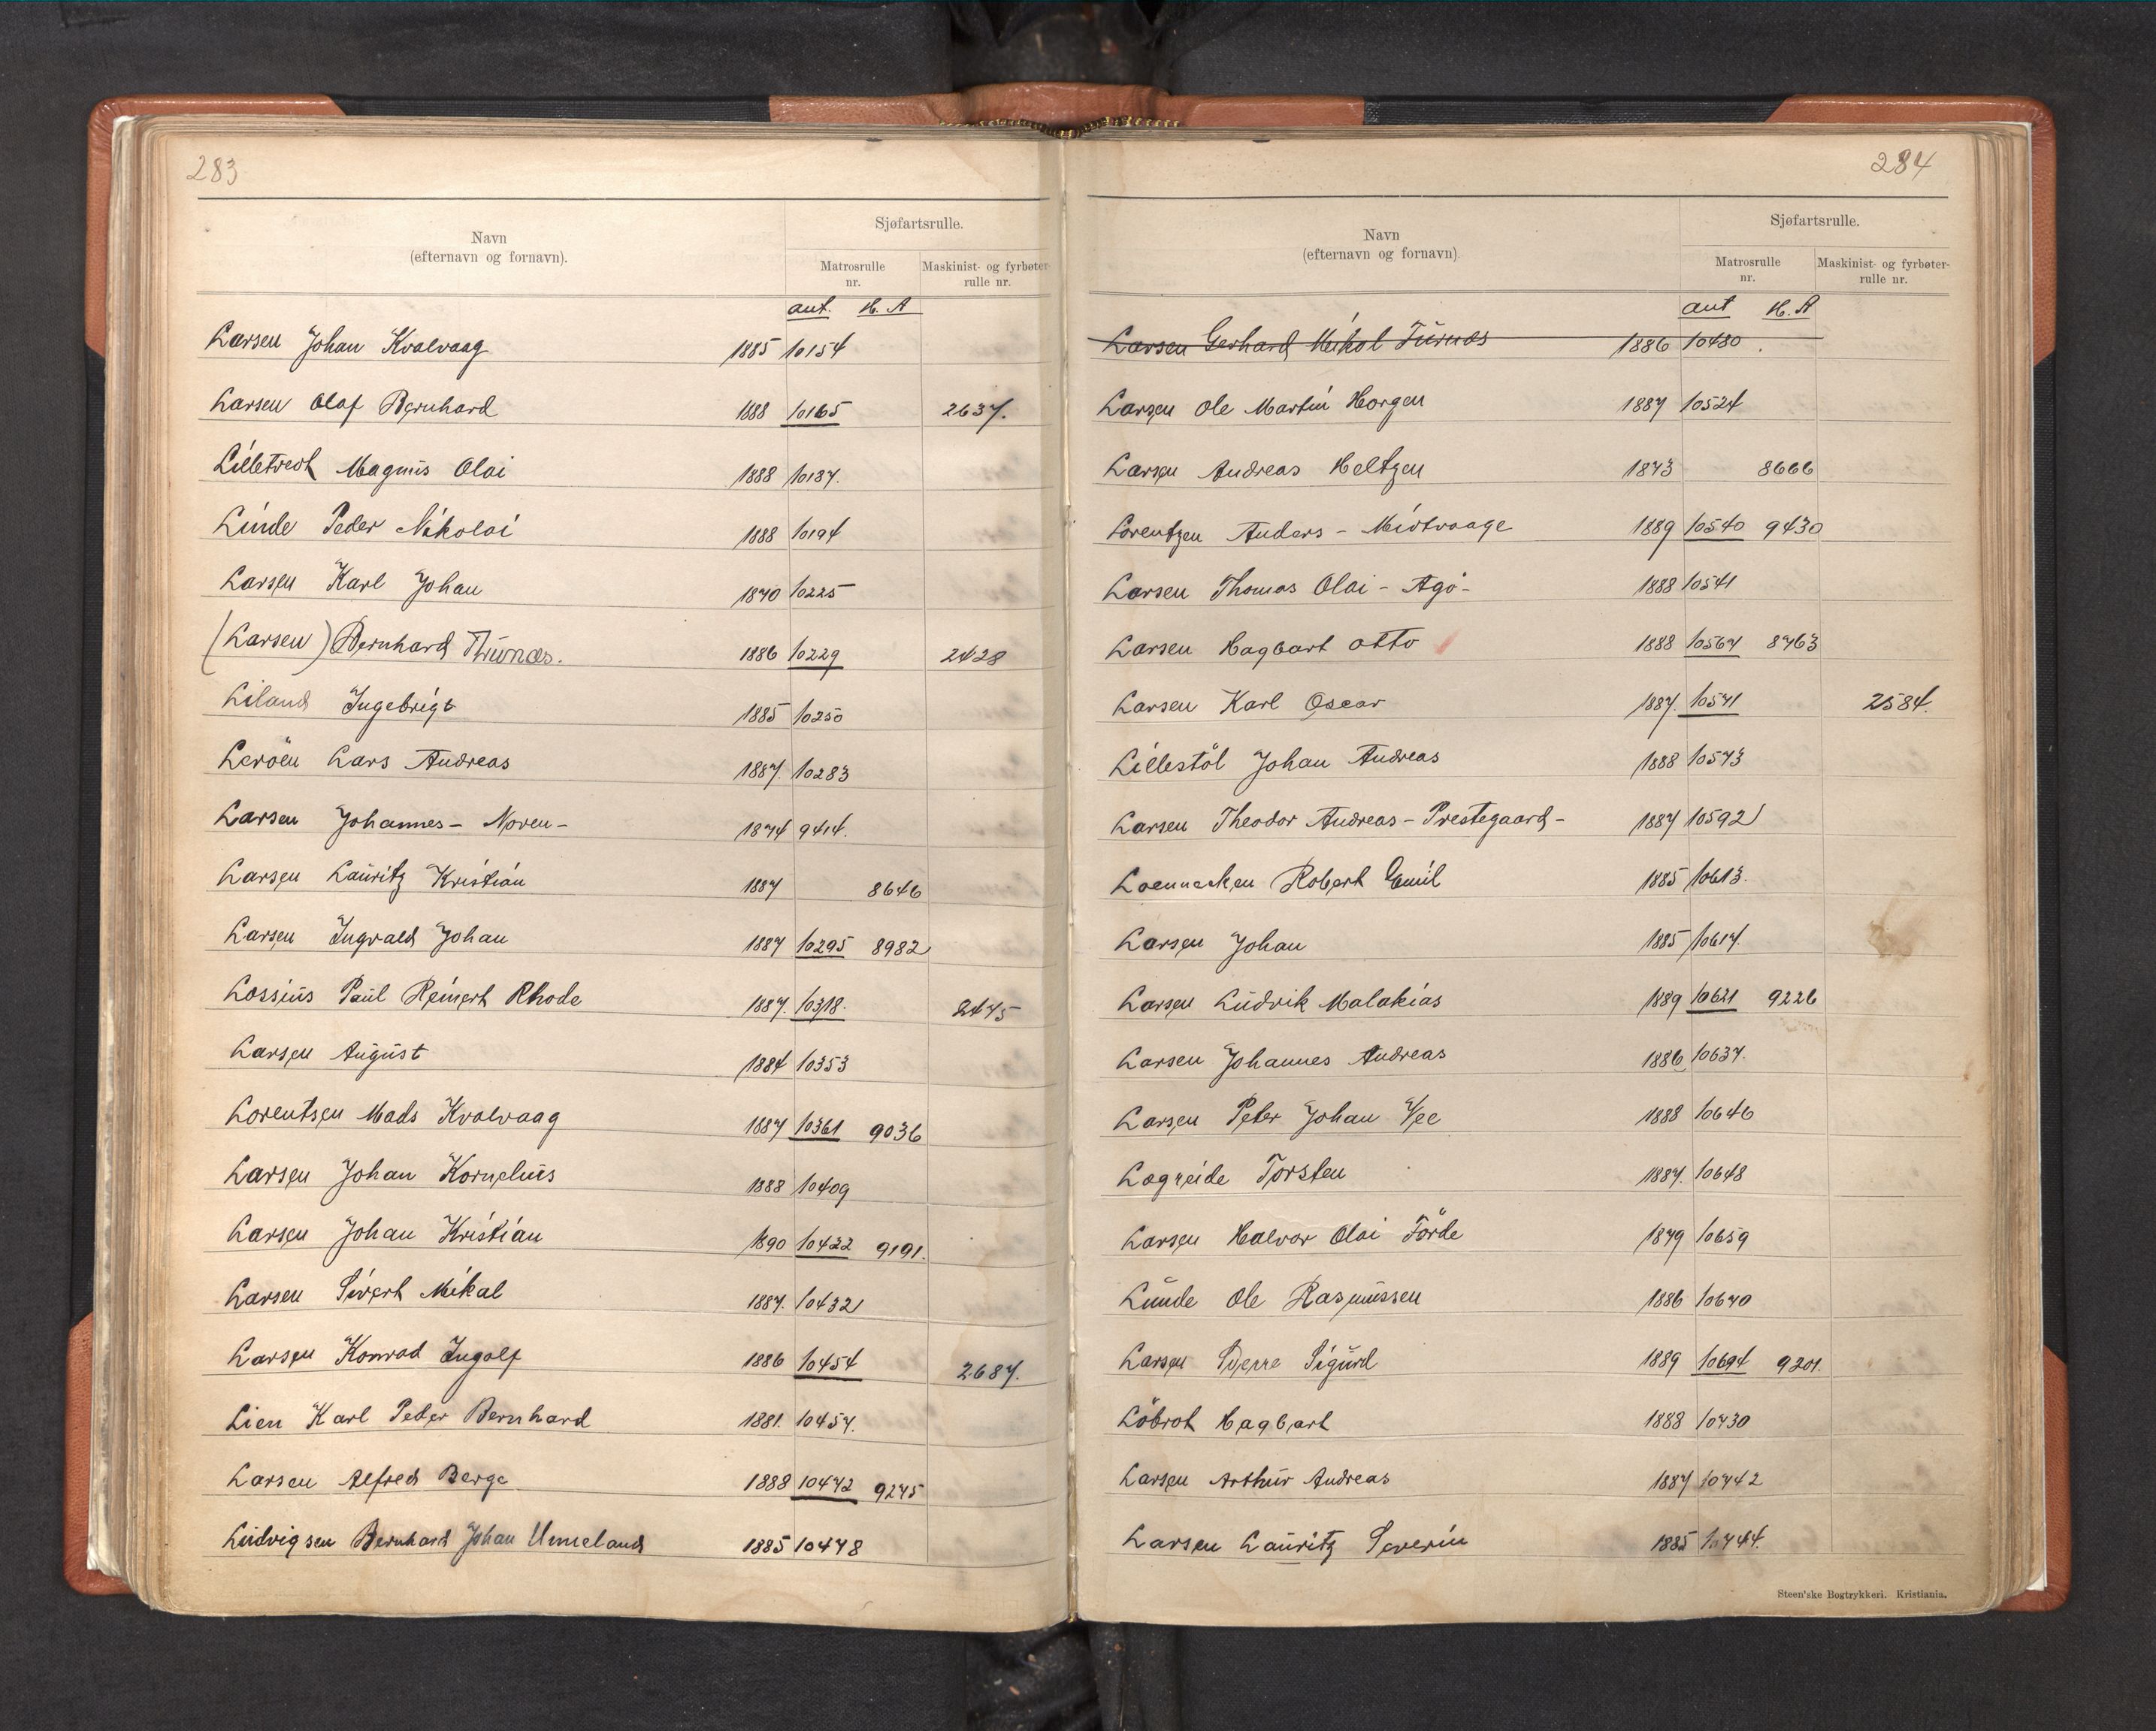 283
Navn
(efternavn og fornavn).
Sjøfartsrulle.
Matrosrulle nr.
Maskinist- og fyrbøter-rulle nr.
ant. H. A
Larsen Johan Kvalvaag 1885 10154
Larsen Olaf Bernhard 1888 10165 2637.
Lilletvedt Magnus Olai 1888 10187.
Linde Peder Nikolai 1888 10194
Larsen Karl Johan 1870 10225
(Larsen) Bernhard Thunæs. 1886 10229 2428
Liland Ingebrigt 1885 10250
Lerøen Lars Andreas 1887. 10283
Larsen Johannes - Noren - 1874 9414.
Larsen Lauritz Kristian 1887 8646
Larsen Ingvald Johan 1887 10295 8982
Lossius Paul Reinert Rhode 1887. 10318. 2475
Larsen August 1884 10353
Lorentsen Mads Kvalvaag 1887 10361 9036
Larsen Johan Kornelius 1888 10409
Larsen Johan Kristian 1890 10422 9191.
Larsen Sivert Mikal 1887. 10432
Larsen Konrad Ingolf 1886 10454 2687.
Lien Karl Peder Bernhard 1881. 10457.
Larsen Alfred Berge 1888 10472 9275
Ludvigsen Bernhard Johan Unneland 1885 10478
284
Navn
(efternavn og fornavn).
Sjøfartsrulle.
Matrosrulle nr.
Maskinist- og fyrbøter-rulle nr.
ant H. A
Larsen Gerhard Mikal Turnæs 1886 10480
Larsen Ole Martin Horgen 1887 10524
Larsen Andreas Heltzen 1873 8666
Lorentzen Anders - Midtvaage 1889 10540 9430
Larsen Thomas Olai - Agø - 1888 10541
Larsen Hagbart Otto 1888 10567 8763
Larsen Karl Oscar 1887. 10571 2584.
Lillestøl Johan Andreas 1888 10573
Larsen Theodor Andreas - Prestegaard - 1887 10592
Loennecken Robert Emil 1885 10613.
Larsen Johan 1885 10617.
Larsen Ludvik Malakias 1889 10621 9226
Larsen Johannes Andreas 1886 10637.
Larsen Peter Johan 1888 10646
Lægreide Torsten 1887. 10648
Larsen Halvor Olai Førde 1879 10659
Lunde Ole Rasmussen 1886 10670
Larsen Sverre Sigurd 1889 10694 9201.
Løbrot Hagbart 1888 10730
Larsen Arthur Andreas 1887 10742
Larsen Lauritz Severin 1885 10744.
Steen'ske Bogtrykkeri. Kristiania.